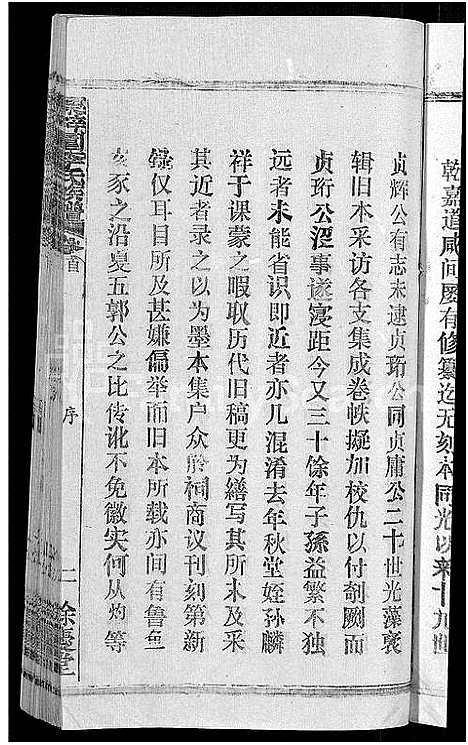 乾嘉道咸间屡有修纂迄无刻本同光以来十九世
贞辉公有志未逮贞珩公同贞庸公二十世光藻裒
辑旧本采访各支集成卷帙拟加校仇以付剞劂而
贞珩公涖事遂寝距今又三十馀年子孫益繁不独
远者未能省识即近者亦几混淆去年秋堂姪孙麟
祥于课蒙之暇取历代旧稿更为缮写其所未及采
其近者录之以为墨本集户众於祠商议刊刻第新
録仅耳目所及甚嫌偏举而旧本所载亦间有鲁鱼
亥豕之沿夏五郭公之比传讹不免徽实何从灼等
氏
卷首
序
二
馀庆堂